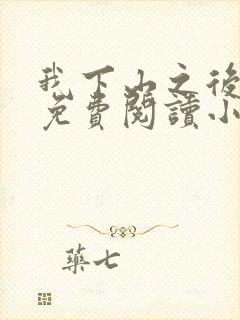 我下山之後
免費閱讀小
藥七